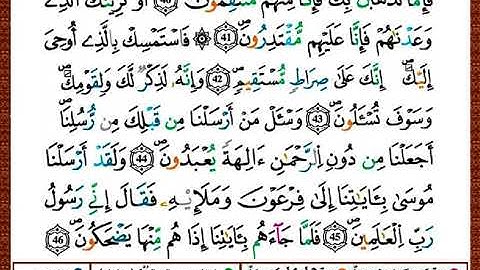 فَإِمَّا نَذْهَبَنَّ بِكَ فَإِنَّا مِنْهُم مُّنتَقِمُونَ ۝٤٠ أَوْ نُرِيَنَّكَ ٱلَّذِى
وَعَدْنَٰهُمْ فَإِنَّا عَلَيْهِم مُّقْتَدِرُونَ ۝٤١ ۞ فَٱسْتَمْسِكْ بِٱلَّذِىٓ أُوحِىَ
إِلَيْكَ ۖ إِنَّكَ عَلَىٰ صِرَٰطٍ مُّسْتَقِيمٍ ۝٤٢ وَإِنَّهُۥ لَذِكْرٌ لَّكَ وَلِقَوْمِكَ ۖ
وَسَوْفَ تُسْـَٔلُونَ ۝٤٣ وَسْـَٔلْ مَنْ أَرْسَلْنَا مِن قَبْلِكَ مِن رُّسُلِنَآ
أَجَعَلْنَا مِن دُونِ ٱلرَّحْمَٰنِ ءَالِهَةً يُعْبَدُونَ ۝٤٤ وَلَقَدْ أَرْسَلْنَا
مُوسَىٰ بِـَٔايَٰتِنَآ إِلَىٰ فِرْعَوْنَ وَمَلَإِي۟هِۦ فَقَالَ إِنِّى رَسُولُ
رَبِّ ٱلْعَٰلَمِينَ ۝٤٥ فَلَمَّا جَآءَهُم بِـَٔايَٰتِنَآ إِذَا هُم مِّنْهَا يَضْحَكُونَ ۝٤٦